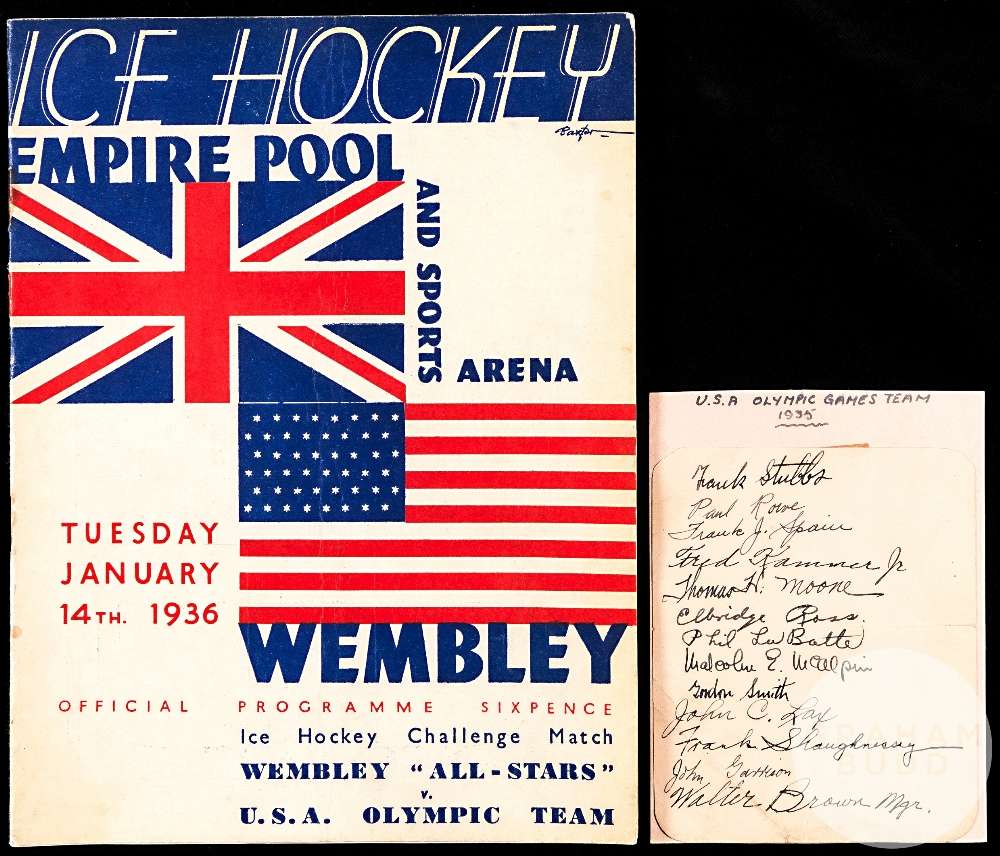 ICE HOCKEY
Baxter
EMPIRE POOL
AND SPORTS
ARENA
TUESDAY
JANUARY
14TH. 1936
WEMBLEY
OFFICIAL PROGRAMME SIXPENCE
Ice Hockey Challenge Match
WEMBLEY "ALL-STARS"
v.
U.S.A. OLYMPIC TEAM
U.S.A OLYMPIC GAMES TEAM
1935
Frank Stubbs
Paul Rowe
Frank J. Spain
Fred Kammer Jr
Thomas H. Moone
Elbridge Ross.
Phil LaBatte
Malcolm E. McAlpin
Gordon Smith
John C. Lax
Frank Shaughnessey
John Garrison
Walter Brown Mgr.
GRAHAM
BUDD